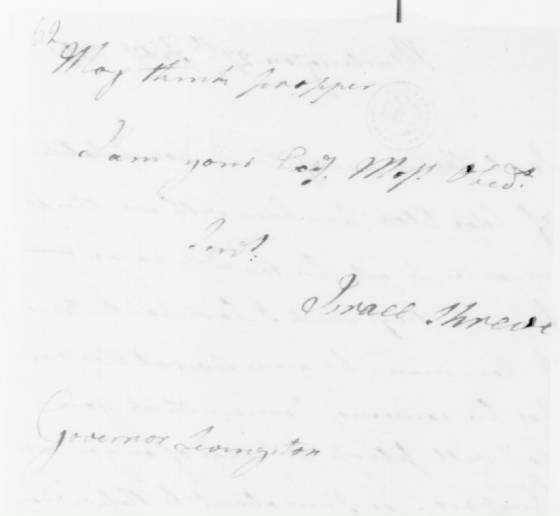 62
May think propper
I am your Excy. Most Obedt.
Servt.
Israel Shreve
Governor Livingston